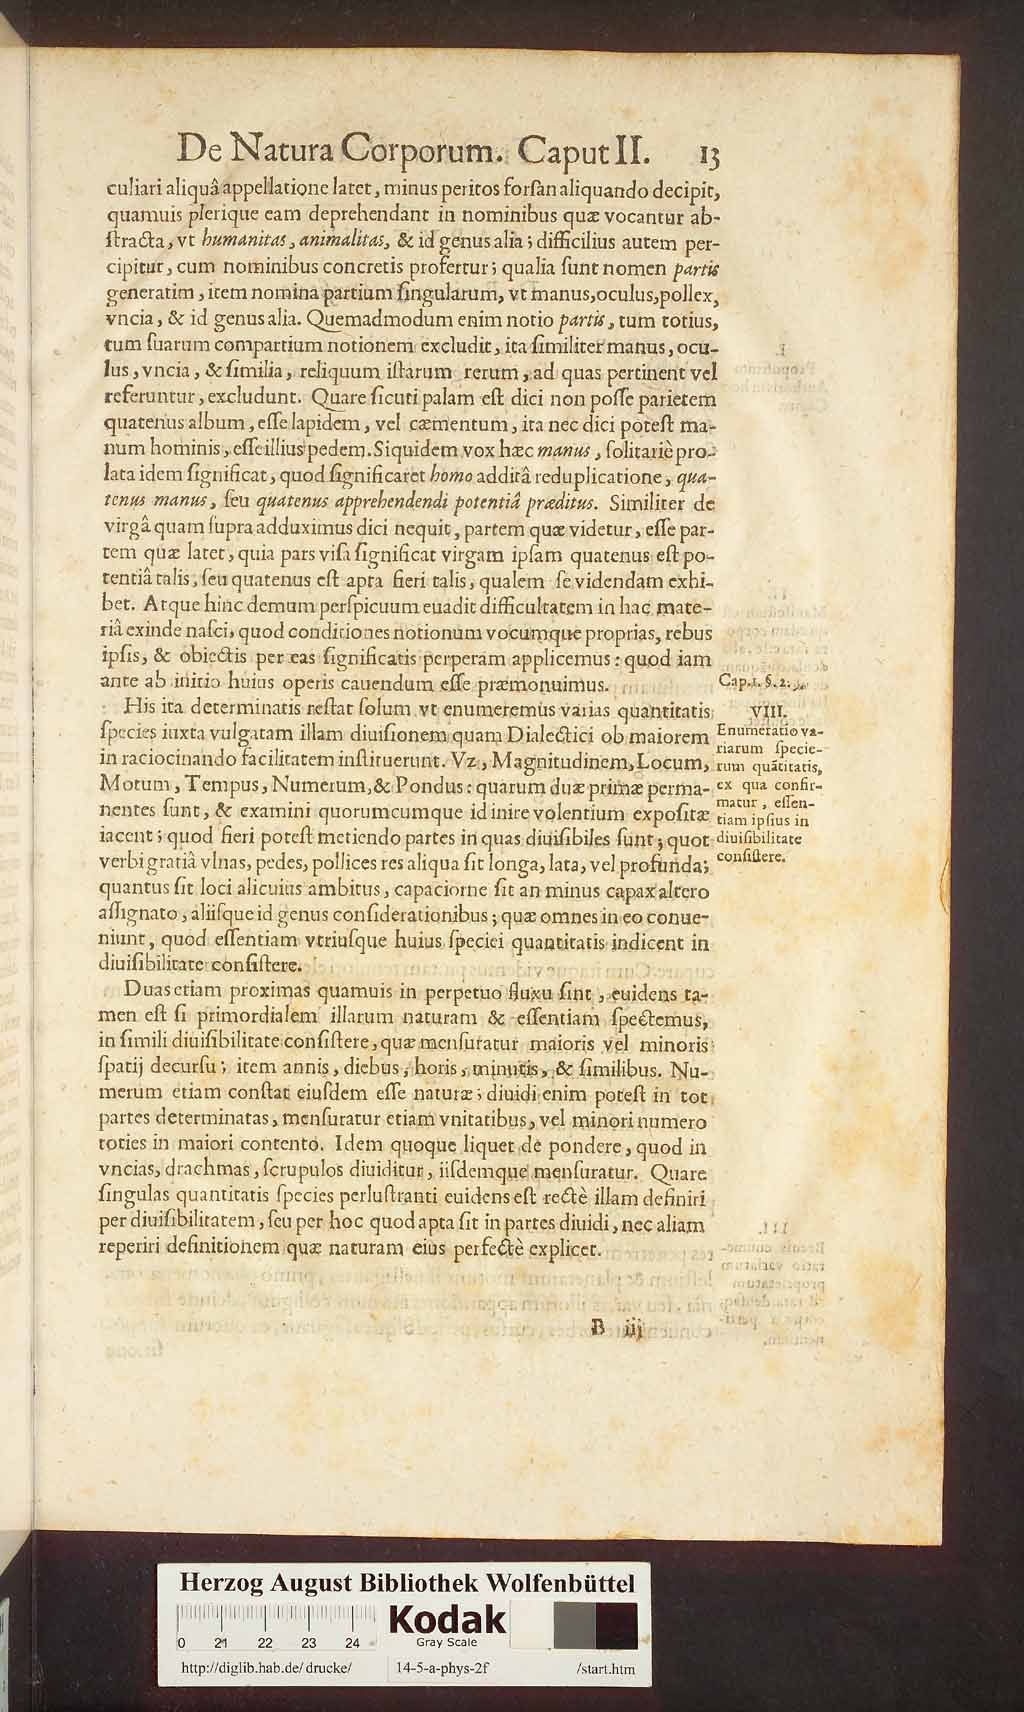 De Natura Corporum. Caput II. 13
culiari aliquâ appellatione latet, minus peritos forſan aliquando decipit,
quamuis plerique eam deprehendant in nominibus quæ vocantur ab-
ſtracta, vt humanitas, animalitas, & id genus alia; difficilius autem per-
cipitur, cum nominibus concretis profertur; qualia ſunt nomen partis
generatim, item nomina partium ſingularum, vt manus, oculus, pollex,
vncia, & id genus alia. Quemadmodum enim notio partis, tum totius,
tum ſuarum compartium notionem excludit, ita ſimiliter manus, ocu-
lus, vncia, & ſimilia, reliquum iſtarum rerum, ad quas pertinent vel
referuntur, excludunt. Quare ſicuti palam eſt dici non poſſe parietem
quatenus album, eſſe lapidem, vel cæmentum, ita nec dici poteſt ma-
num hominis, eſſe illius pedem. Siquidem vox hæc manus, ſolitariè pro-
lata idem ſignificat, quod ſignificaret homo additâ reduplicatione, qua-
tenus manus, ſeu quatenus apprehendendi potentiâ præditus. Similiter de
virgâ quam ſupra adduximus dici nequit, partem quæ videtur, eſſe par-
tem quæ latet, quia pars viſa ſignificat virgam ipſam quatenus eſt po-
tentiâ talis, ſeu quatenus eſt apta fieri talis, qualem ſe videndam exhi-
bet. Atque hinc demum perſpicuum euadit difficultatem in hac mate-
riâ exinde naſci, quod conditiones notionum vocumque proprias, rebus
ipſis, & obiectis per eas ſignificatis perperam applicemus: quod iam
ante ab initio huius operis cauendum eſſe præmonuimus.
Cap. 1. §. 2.
His ita determinatis reſtat ſolum vt enumeremus varias quantitatis
ſpecies iuxta vulgatam illam diuiſionem quam Dialectici ob maiorem
in raciocinando facilitatem inſtituerunt. Vz, Magnitudinem, Locum,
Motum, Tempus, Numerum, & Pondus: quarum duæ primæ perma-
nentes ſunt, & examini quorumcumque id inire volentium expoſitæ
iacent; quod fieri poteſt metiendo partes in quas diuiſibiles ſunt; quot
verbi gratiâ vlnas, pedes, pollices res aliqua ſit longa, lata, vel profunda;
quantus ſit loci alicuius ambitus, capaciorne ſit an minus capax altero
aſſignato, aliiſque id genus conſiderationibus; quæ omnes in eo conue-
niunt, quod eſſentiam vtriuſque huius ſpeciei quantitatis indicent in
diuiſibilitate conſiſtere.
VIII.
Enumeratio va-
riarum ſpecie-
rum quātitatis,
ex qua confir-
matur, eſſen-
tiam ipſius in
diuiſibilitate
conſiſtere.
Duas etiam proximas quamuis in perpetuo fluxu ſint, euidens ta-
men eſt ſi primordialem illarum naturam & eſſentiam ſpectemus,
in ſimili diuiſibilitate conſiſtere, quæ menſuratur maioris vel minoris
ſpatij decurſu; item annis, diebus, horis, minutis, & ſimilibus. Nu-
merum etiam conſtat eiuſdem eſſe naturæ; diuidi enim poteſt in tot
partes determinatas, menſuratur etiam vnitatibus, vel minori numero
toties in maiori contento. Idem quoque liquet de pondere, quod in
vncias, drachmas, ſcrupulos diuiditur, iiſdemque menſuratur. Quare
ſingulas quantitatis ſpecies perluſtranti euidens eſt rectè illam definiri
per diuiſibilitatem, ſeu per hoc quod apta ſit in partes diuidi, nec aliam
reperiri definitionem quæ naturam eius perfectè explicet.
B iij
Herzog August Bibliothek Wolfenbüttel
Kodak
Gray Scale
0 21 22 23 24
http://diglib.hab.de/drucke/ 14-5-a-phys-2f /start.htm